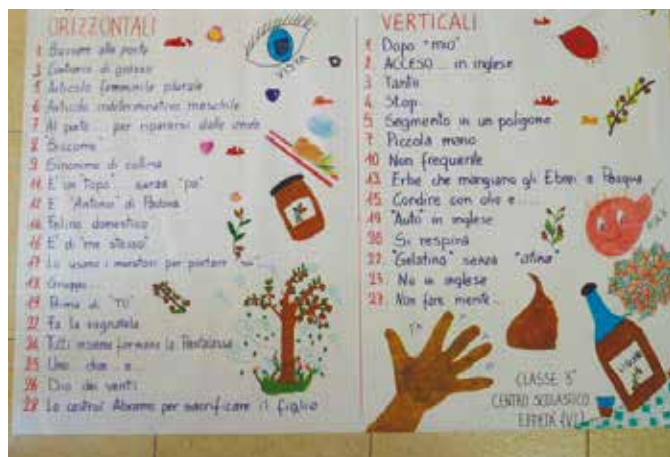 ORIZZONTALI
1 Bussare alla porta
3 Contrario di grasso
5 Articolo femminile plurale
6 Articolo indeterminativo maschile
7 Al porto... per ripararsi dalle onde
8 "Siccome"
9 Sinonimo di collina
11 E' un "topo" senza "po"
12 E' "Antonio" di Padova
14 Felino domestico
16 E' di "me stesso"
17 Lo usano i muratori per portare "su"
18 Gruppo
19 Prima di "TU"
22 Fa la ragnatela
24 Tutti insieme formano la Pentalassa
25 Uno due e...
26 Dio dei venti
28 Lo costruì Abramo per sacrificare il figlio
VISTA
VERTICALI
1 Dopo "mio"
2 ACCESO... in inglese
3 Tanti
4 Stop
5 Segmento in un poligono
7 Piccola mano
10 Non frequente
13 Erbe che mangiano gli Ebrei a Pasqua
15 Condire con olio e......
19 "Auto" in inglese
20 Si respira
22 "Gelatina" senza "atina"
23 No in inglese
27 Non fare niente...
CLASSE 3ª
CENTRO SCOLASTICO
EFFETÀ (VI)